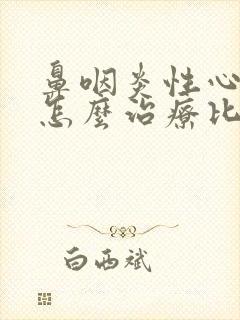 鼻咽炎性心
怎麼治療比
白西斌